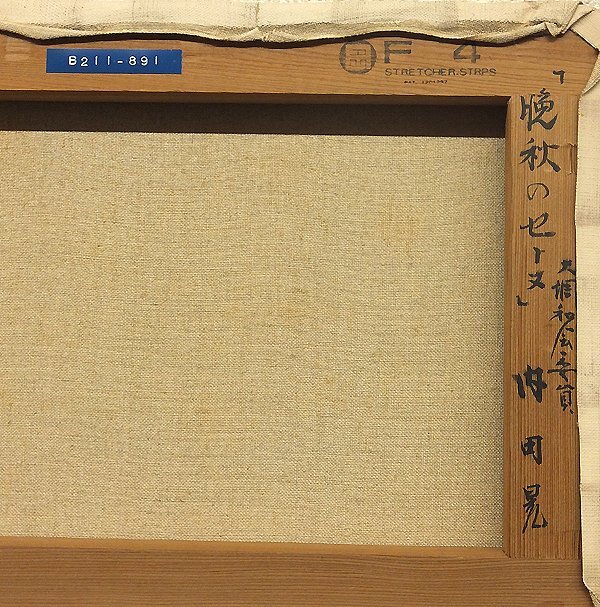 B211-891
F 4
STRETCHER.STRPS
「晩秋のセーヌ」
大潮会委員
内田晃